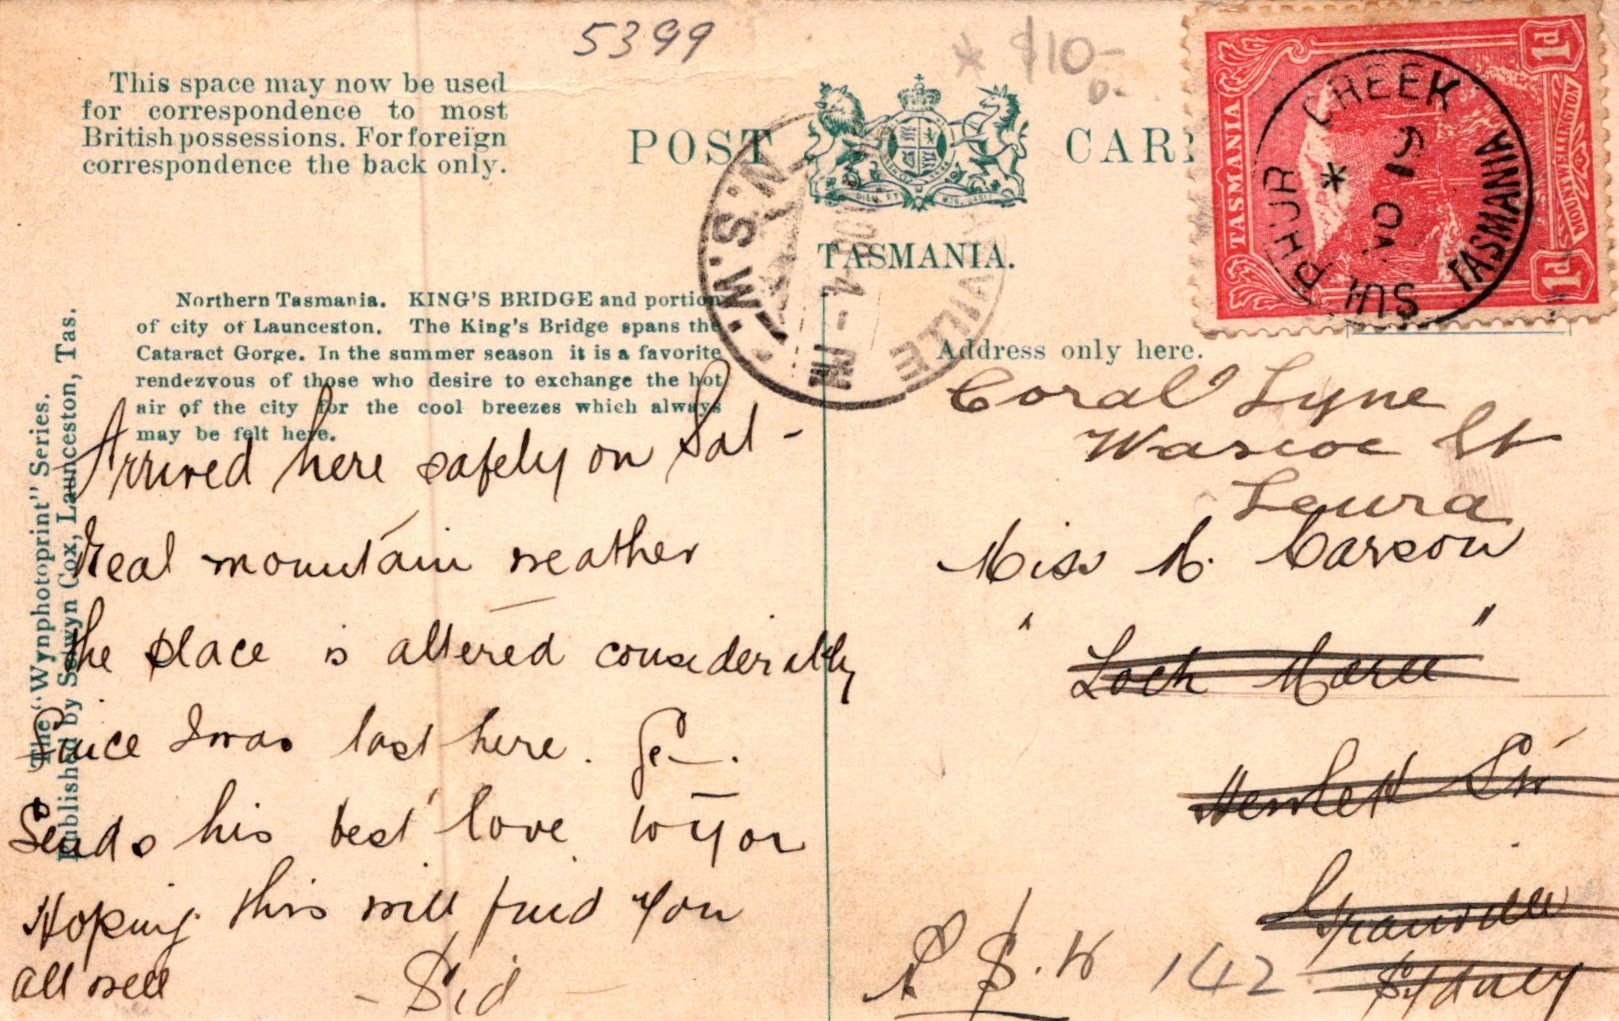 5399
* $10-
This space may now be used
for correspondence to most
British possessions. For foreign
correspondence the back only.
POST CAR
TASMANIA.
TASMANIA
1d
1d
MOUNT WELLINGTON
SULPHUR CREEK
TASMANIA
N.S.W.
VILLE
1-PM
Northern Tasmania. KING'S BRIDGE and portion
of city of Launceston. The King's Bridge spans the
Cataract Gorge. In the summer season it is a favorite
rendezvous of those who desire to exchange the hot
air of the city for the cool breezes which always
may be felt here.
The "Wynphotoprint" Series.
Published by Selwyn Cox, Launceston, Tas.
Address only here.
Arrived here safely on Sat-
Real mountain weather
the place is altered considerably
Since I was last here. Ge—.
Sends his best love to you
Hoping this will find you
all well
- Sid -
Coral Lyne
Wascoe St
Leura
Miss M. Carson
"Loch Maree"
Hewlett St
Granville
Sydney
N.S.W
142